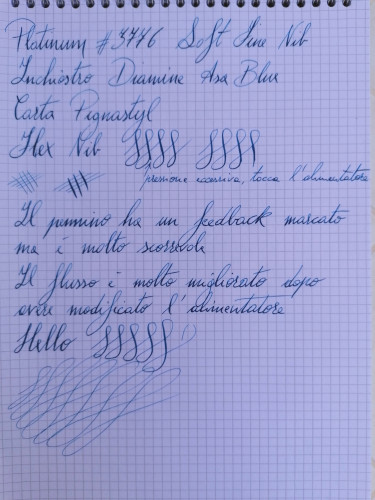 Platinum #3776 Soft Fine Nib
Inchiostro Diamine Asa Blue
Carta Pignastyl
Flex Nib
pressione eccessiva, tocca l'alimentatore
Il pennino ha un feedback marcato
ma è molto scorrevole
Il flusso è molto migliorato dopo
avere modificato l'alimentatore
Hello